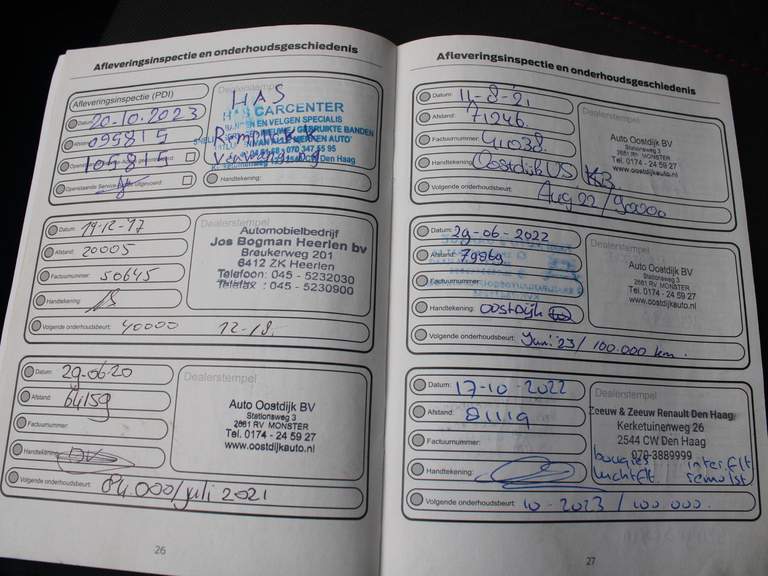 Afleveringsinspectie en onderhoudsgeschiedenis
Afleveringsinspectie (PDI)
Datum: 20.10.2023
095815
105815
Openstaande Service
uitgevoerd:
Dealerstempel
HAS
HAS CARCENTER
BANDEN EN VELGEN SPECIALIS
NIEUWE / GEBRUIKTE BANDEN
VAN ALLE MERKEN AUTO'
070 347 55 95
Den Haag
Handtekening:
Datum: 19-12-17
Afstand: 20005
Factuurnummer: 50645
Handtekening:
Volgende onderhoudsbeurt: 40000 12-18.
Dealerstempel
Automobielbedrijf
Jos Bogman Heerlen bv
Breukerweg 201
6412 ZK Heerlen
Telefoon: 045 - 5232030
Telefax : 045 - 5230900
Datum: 29-06-20
Afstand: 64159
Factuurnummer:
Handtekening:
Volgende onderhoudsbeurt: 84.000/juli 2021
Dealerstempel
Auto Oostdijk BV
Stationsweg 3
2681 RV MONSTER
Tel. 0174 - 24 59 27
www.oostdijkauto.nl
26
Afleveringsinspectie en onderhoudsgeschiedenis
Datum: 11-8-21
Afstand: 71246.
Factuurnummer: 41038.
Handtekening: Oostdijk
Volgende onderhoudsbeurt: Aug 22 / 90000
Dealerstempel
Auto Oostdijk BV
Stationsweg 3
2681 RV MONSTER
Tel. 0174 - 24 59 27
www.oostdijkauto.nl
Datum: 29-06-2022
Afstand: 79869
Factuurnummer:
Handtekening: oostdijk
Volgende onderhoudsbeurt: Juni 23/100.000 km.
Dealerstempel
Auto Oostdijk BV
Stationsweg 3
2681 RV MONSTER
Tel. 0174 - 24 59 27
www.oostdijkauto.nl
Datum: 17-10-2022
Afstand: 81119
Factuurnummer:
Handtekening:
Volgende onderhoudsbeurt: 10-2023 / 100.000.
Dealerstempel
Zeeuw & Zeeuw Renault Den Haag
Kerketuinenweg 26
2544 CW Den Haag
070-3889999
bougies interflt
luchtflt remvlst
27